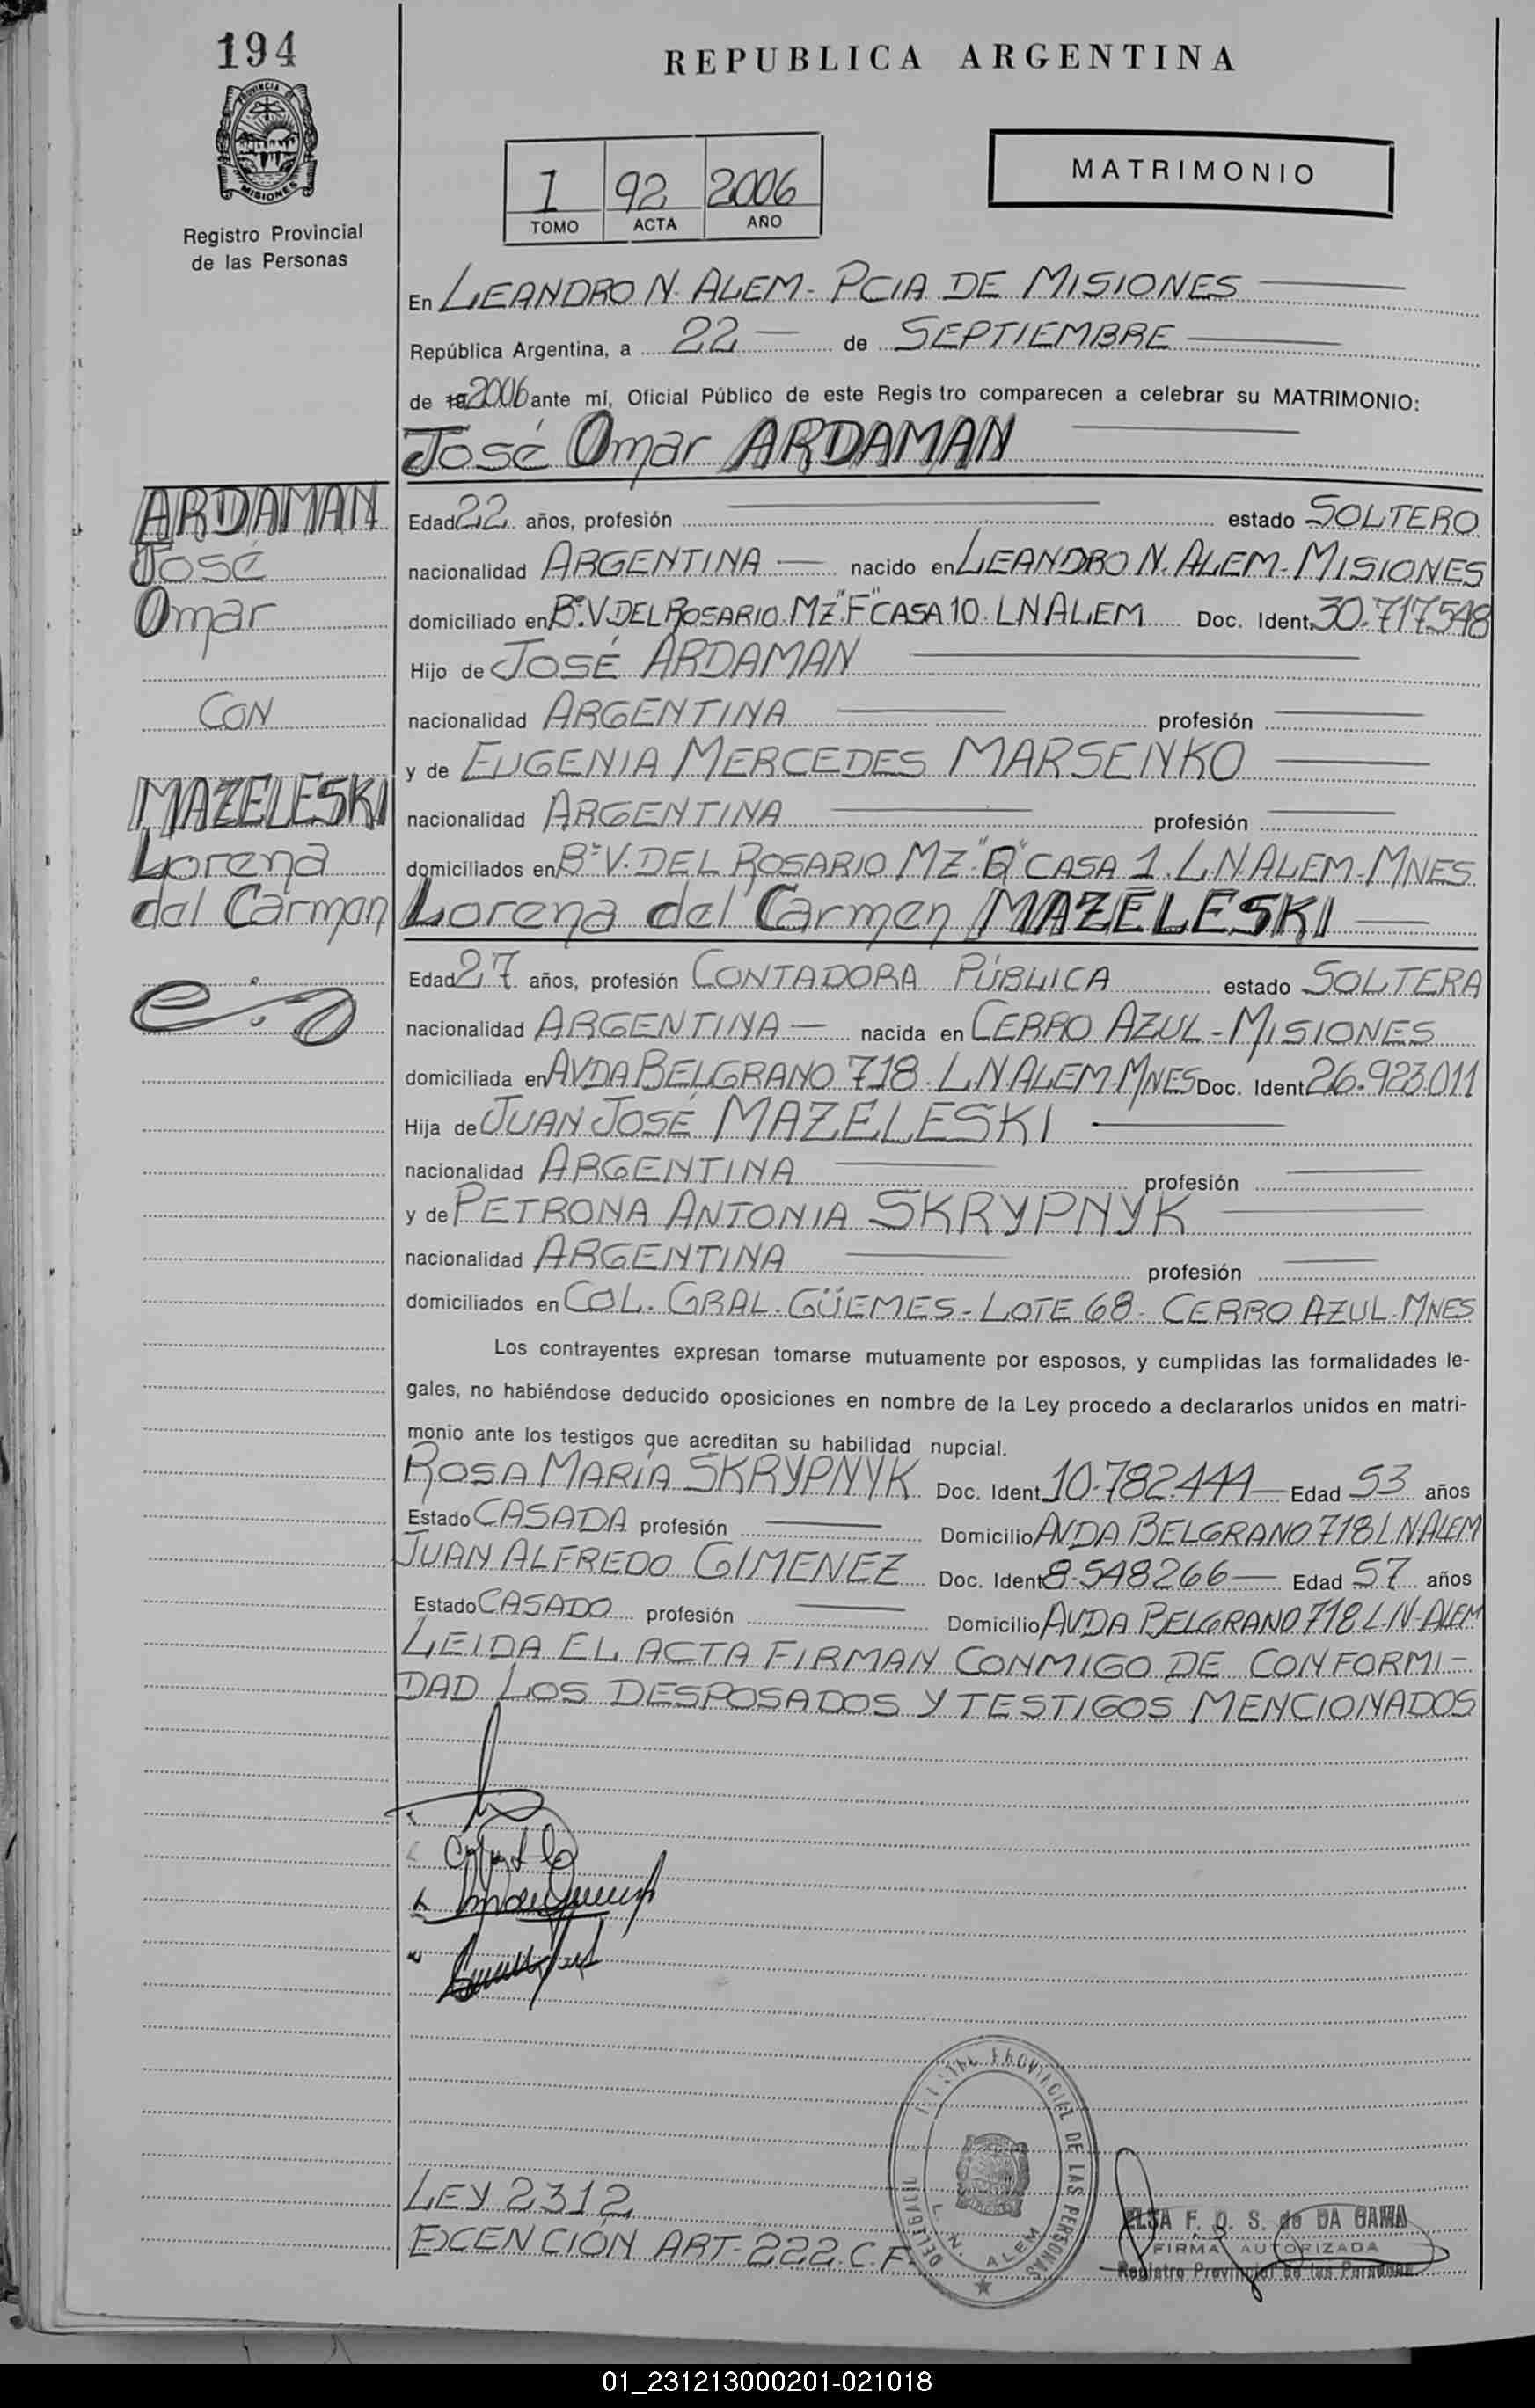 194
REPUBLICA ARGENTINA
PROVINCIA DE MISIONES
MATRIMONIO
1 92 2006
TOMO ACTA AÑO
Registro Provincial
de las Personas
En LEANDRO N. ALEM - PCIA DE MISIONES
República Argentina, a 22 de SEPTIEMBRE
de 19 2006 ante mí, Oficial Público de este Registro comparecen a celebrar su MATRIMONIO:
José Omar ARDAMAN
ARDAMAN
José
Omar
CON
MAZELESKI
Lorena
del Carmen
Edad 22 años, profesión estado SOLTERO
nacionalidad ARGENTINA nacido en LEANDRO N. ALEM - MISIONES
domiciliado en Bº V. DEL ROSARIO MZ "F" CASA 10. LN ALEM Doc. Ident. 30.717548
Hijo de JOSÉ ARDAMAN
nacionalidad ARGENTINA profesión
y de EUGENIA MERCEDES MARSENKO
nacionalidad ARGENTINA profesión
domiciliados en Bº V. DEL ROSARIO MZ "Q" CASA 1. L.N ALEM - MNES
Lorena del Carmen MAZELESKI
Edad 27 años, profesión CONTADORA PÚBLICA estado SOLTERA
nacionalidad ARGENTINA nacida en CERRO AZUL - MISIONES
domiciliada en AVDA BELGRANO 718. L.N ALEM - MNES Doc. Ident. 26.923.011
Hija de JUAN JOSÉ MAZELESKI
nacionalidad ARGENTINA profesión
y de PETRONA ANTONIA SKRYPNYK
nacionalidad ARGENTINA profesión
domiciliados en COL. GRAL. GÜEMES - LOTE 68 - CERRO AZUL - MNES
Los contrayentes expresan tomarse mutuamente por esposos, y cumplidas las formalidades le-
gales, no habiéndose deducido oposiciones en nombre de la Ley procedo a declararlos unidos en matri-
monio ante los testigos que acreditan su habilidad nupcial.
ROSA MARÍA SKRYPNYK Doc. Ident. 10.782.444 Edad 53 años
Estado CASADA profesión Domicilio AVDA BELGRANO 718 L.N ALEM
JUAN ALFREDO GIMENEZ Doc. Ident. 8.548266 Edad 57 años
Estado CASADO profesión Domicilio AVDA BELGRANO 718 L.N - ALEM
LEIDA EL ACTA FIRMAN CONMIGO DE CONFORMI-
DAD LOS DESPOSADOS Y TESTIGOS MENCIONADOS
PROVINCIAL DE LAS PERSONAS
L. N. ALEM
LEY 2312
EXCENCIÓN ART. 222. C.F.
ELSA F. D. S. de DA GAMA
FIRMA AUTORIZADA
Registro Provincial de las Personas
01_231213000201-021018